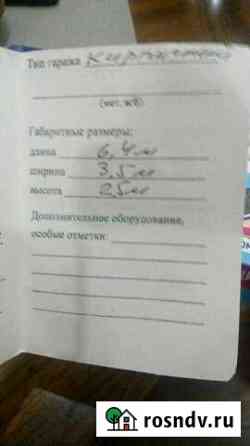 Тип гаража кирпичный
(мет. ж/б)
Габаритные размеры:
длина 6,4 м
ширина 3,5 м
высота 2,5 м
Дополнительное оборудование,
особые отметки:
rosndv.ru